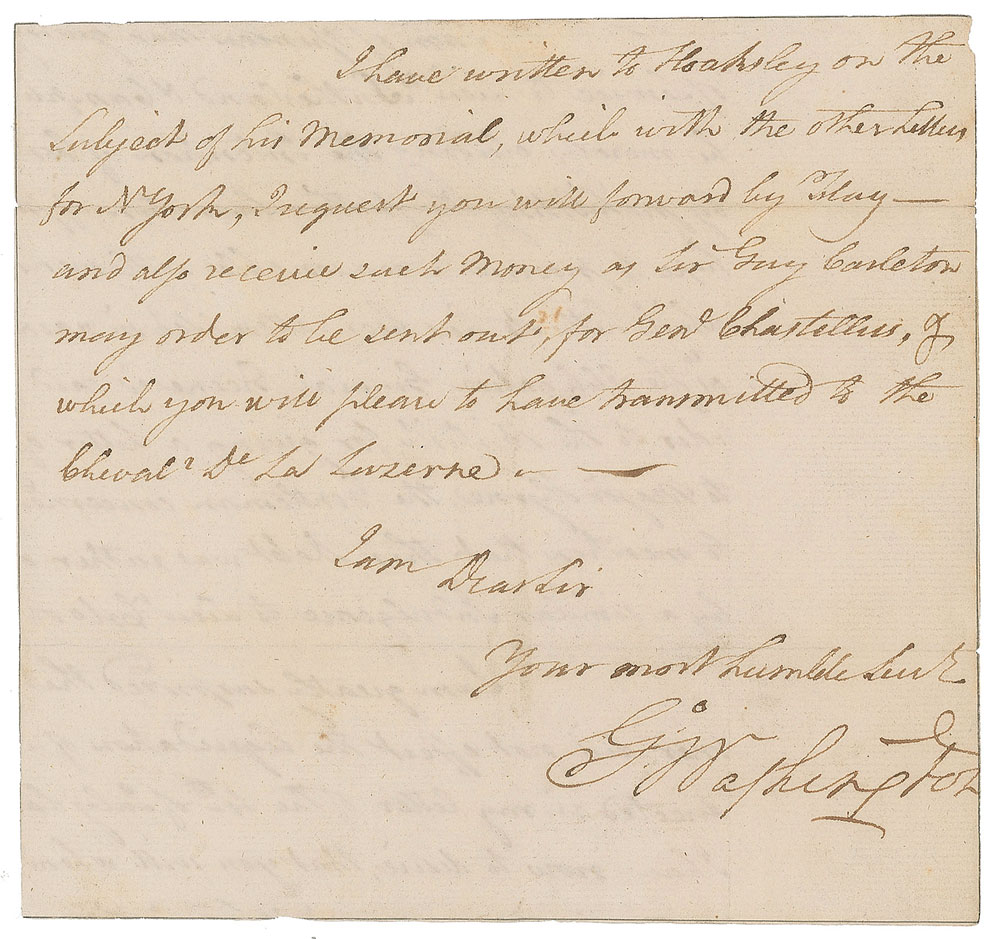 I have written to Hoaksley on the
Subject of his Memorial, which with the other Letters
for N York, I request you will forward by Flag —
and also receive such Money as Sir Guy Carleton
may order to be sent out, for Genl Chastellux, &
which you will please to have transmitted to the
Chevalr De La Luzerne. —
I am
Dear Sir
Your most humble Servt
Go Washington